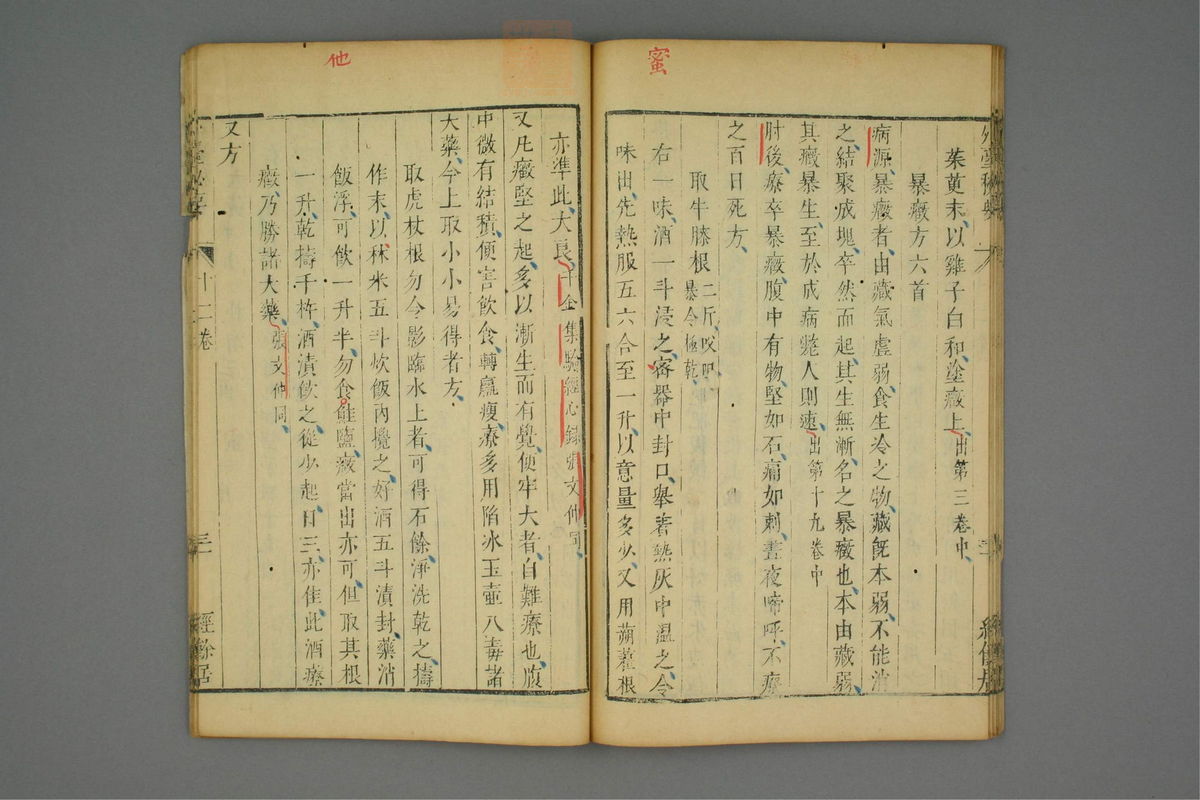 蜜
茱萸末、以雞子白和、塗癥上、出第三卷中、
暴癥方六首
病源、暴癥者、由臟氣虛弱、食生冷之物、臟既本弱、不能消
之、結聚成塊、卒然而起、其生無漸、名之暴癥也、本由臟弱、
其癥暴生、至於成病斃人則速、出第十九卷中
肘後、療卒暴癥、腹中有物堅如石、痛如刺、晝夜啼呼、不療
之百日死方、
取牛膝根二斤、㕮咀、暴令極乾、
右一味、酒一斗浸之、密器中封口、舉著熱灰中溫之、令
味出、先熱服五六合至一升、以意量多少、又用蒴藋根
他
亦準此、大良、千金集驗經心錄張文仲同、
又凡癥堅之起、多以漸生而有覺、便牢大者、自難療也、腹
中微有結積、便害飲食、轉羸瘦、療多用陷冰玉壺八毒諸
大藥、今上取小小易得者方、
取虎杖根勿令影臨水上者、可得石餘、淨洗乾之、擣
作末、以秫米五斗炊飯內攪之、好酒五斗漬封、藥消
飯浮、可飲一升半、勿食鮭鹽、癥當出、亦可但取其根
一升、乾擣千杵、酒漬飲之、從少起、日三、亦佳、此酒療
癥、乃勝諸大藥、張文仲同、
又方
十二卷
三
經餘居